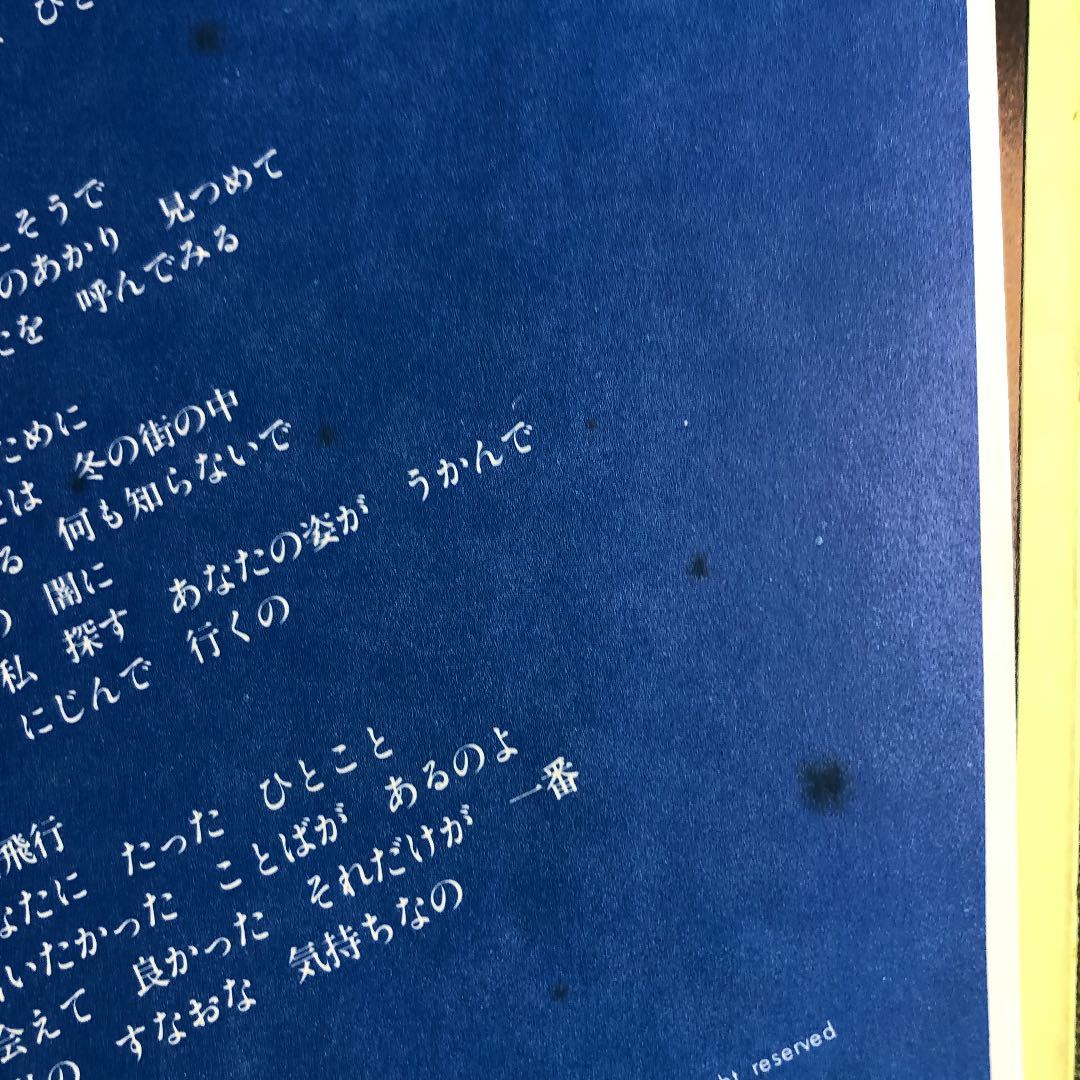 ひと
そうで
のあかり 見つめて
を 呼んでみる
ために
は 冬の街の中
る 何も知らないで
闇に
私 探す あなたの姿が うかんで
にじんで 行くの
飛行
なたに たった ひとこと
いたかった ことばが あるのよ
会えて 良かった それだけが 一番
の すなおな 気持ちなの
reserved